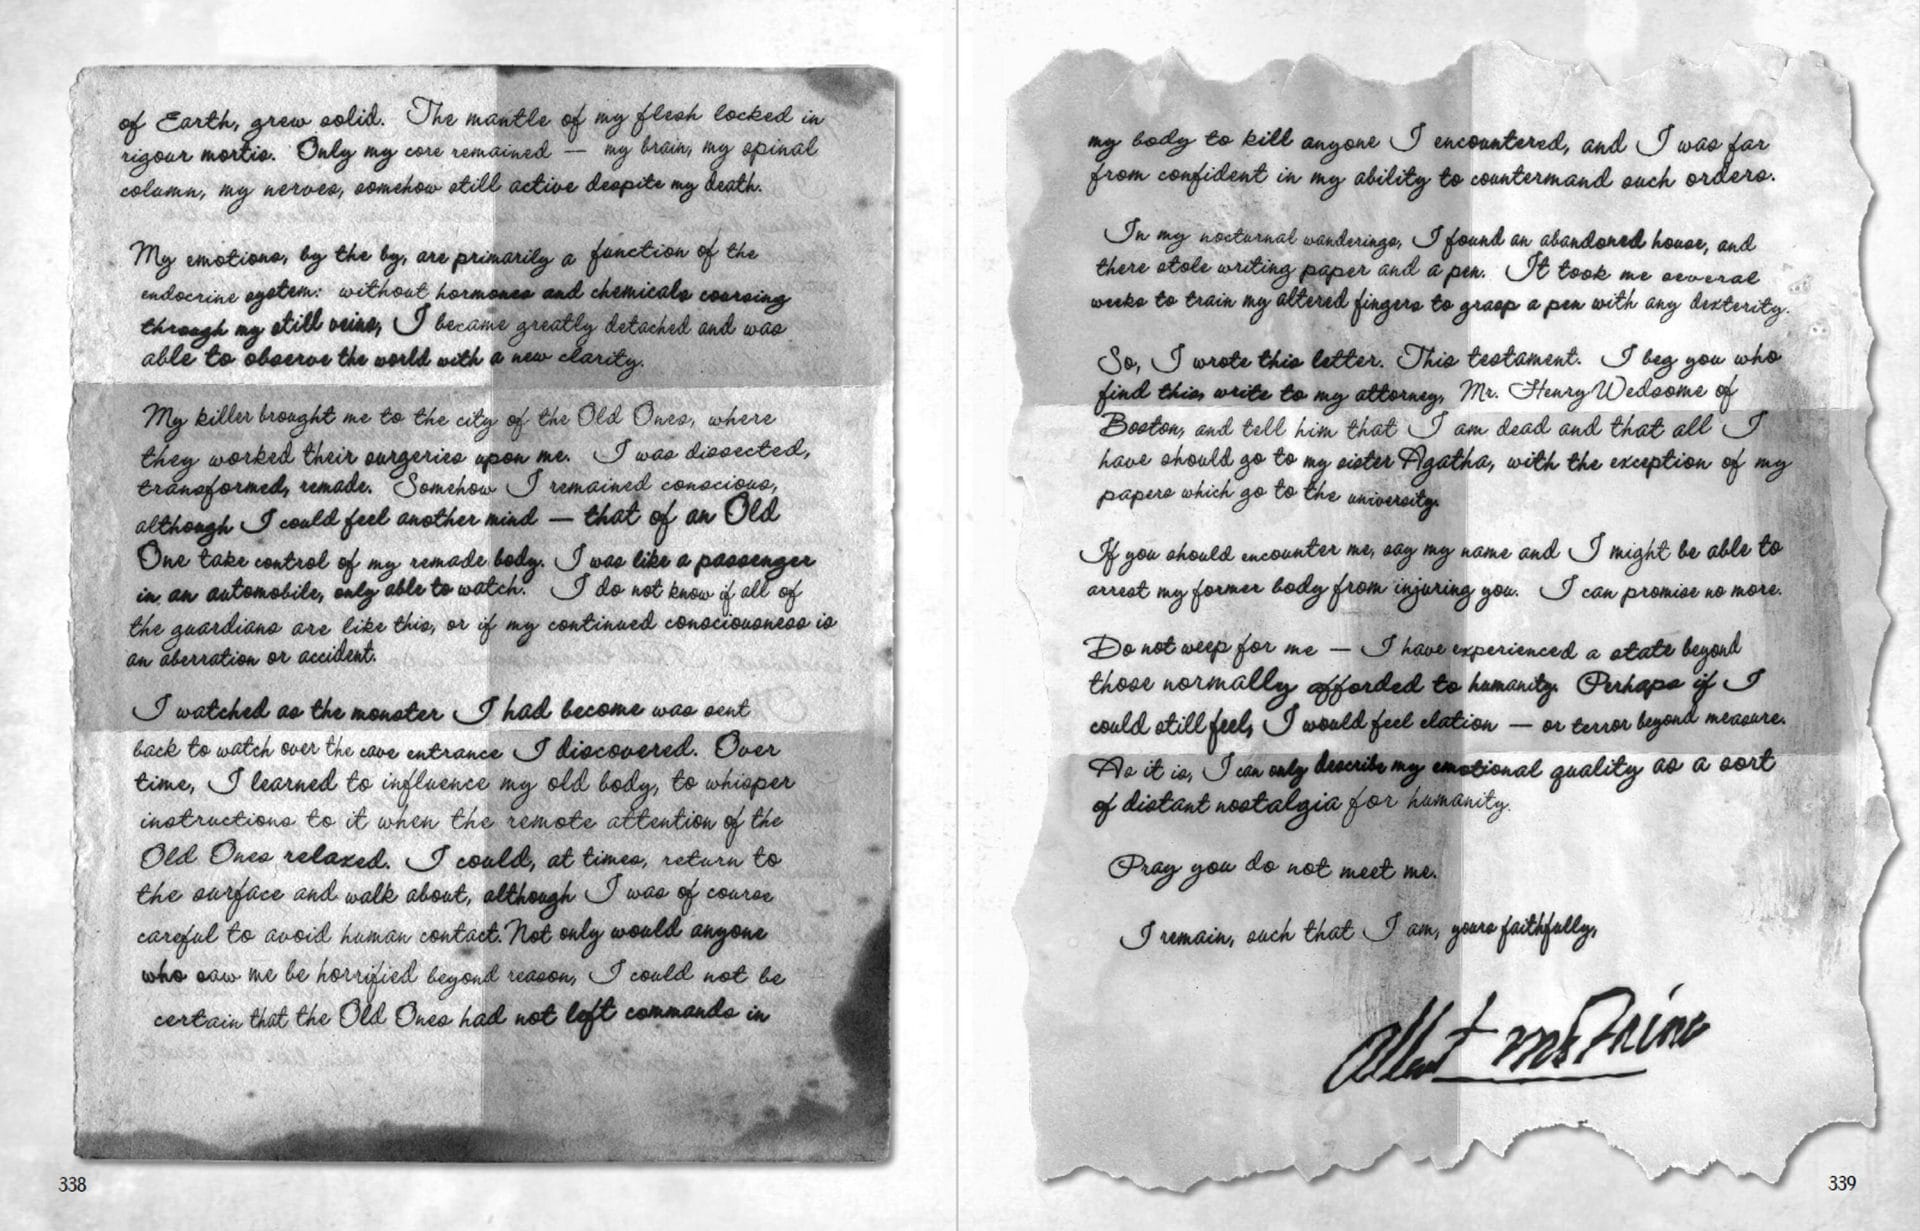 of Earth, grew solid. The mantle of my flesh locked in
rigour mortis. Only my core remained — my brain, my spinal
column, my nerves, somehow still active despite my death.
My emotions, by the by, are primarily a function of the
endocrine system: without hormones and chemicals coursing
through my still veins, I became greatly detached and was
able to observe the world with a new clarity.
My killer brought me to the city of the Old Ones, where
they worked their surgeries upon me. I was dissected,
transformed, remade. Somehow I remained conscious,
although I could feel another mind — that of an Old
One take control of my remade body. I was like a passenger
in an automobile, only able to watch. I do not know if all of
the guardians are like this, or if my continued consciousness is
an aberration or accident.
I watched as the monster I had become was sent
back to watch over the cave entrance I discovered. Over
time, I learned to influence my old body, to whisper
instructions to it when the remote attention of the
Old Ones relaxed. I could, at times, return to
the surface and walk about, although I was of course
careful to avoid human contact. Not only would anyone
who saw me be horrified beyond reason, I could not be
certain that the Old Ones had not left commands in
338
my body to kill anyone I encountered, and I was far
from confident in my ability to countermand such orders.
In my nocturnal wanderings, I found an abandoned house, and
there stole writing paper and a pen. It took me several
weeks to train my altered fingers to grasp a pen with any dexterity.
So, I wrote this letter. This testament. I beg you who
find this, write to my attorney, Mr. Henry Wedsome of
Boston, and tell him that I am dead and that all I
have should go to my sister Agatha, with the exception of my
papers which go to the university.
If you should encounter me, say my name and I might be able to
arrest my former body from injuring you. I can promise no more.
Do not weep for me — I have experienced a state beyond
those normally afforded to humanity. Perhaps if I
could still feel, I would feel elation — or terror beyond measure.
As it is, I can only describe my emotional quality as a sort
of distant nostalgia for humanity.
Pray you do not meet me.
I remain, such that I am, yours faithfully,
339